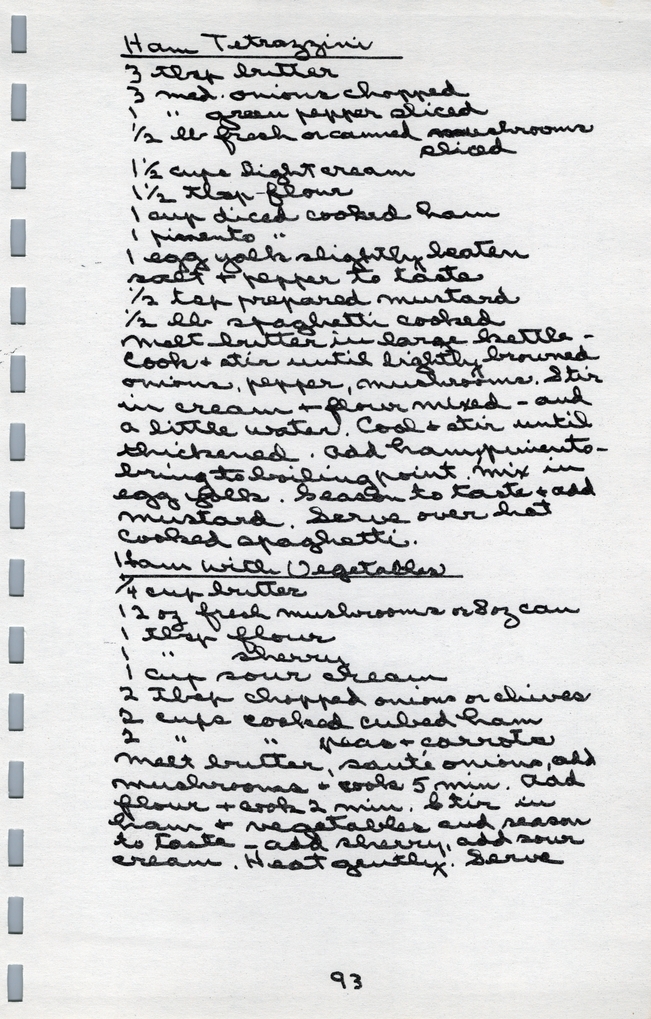 Ham Tetrazzini
3 tbsp butter
3 med. onions chopped
1 " green pepper sliced
1/2 lb fresh or canned mushrooms
sliced
1 1/2 cups light cream
1 1/2 tbsp flour
1 cup diced cooked ham
1 pimento "
1 egg yolk slightly beaten
salt + pepper to taste
1/2 tsp prepared mustard
1/2 lb spaghetti cooked
Melt butter in large kettle -
Cook + stir until lightly browned
onions, pepper, mushrooms. Stir
in cream + flour mixed - and
a little water. Cook + stir until
thickened. Add ham, pimento -
bring to boiling point, mix in
egg yolk. Season to taste + add
mustard. Serve over hot
cooked spaghetti.
Ham with Vegetables
1/4 cup butter
12 oz fresh mushrooms or 8 oz can
1 tbsp flour
1 " sherry
1 cup sour cream
2 Tbsp chopped onions or chives
2 cups cooked cubed ham
2 " " peas + carrots
Melt butter, sauté onions, add
mushrooms + cook 5 min. Add
flour + cook 2 min. Stir in
ham + vegetables and season
to taste - add sherry, add sour
cream. Heat gently. Serve
93